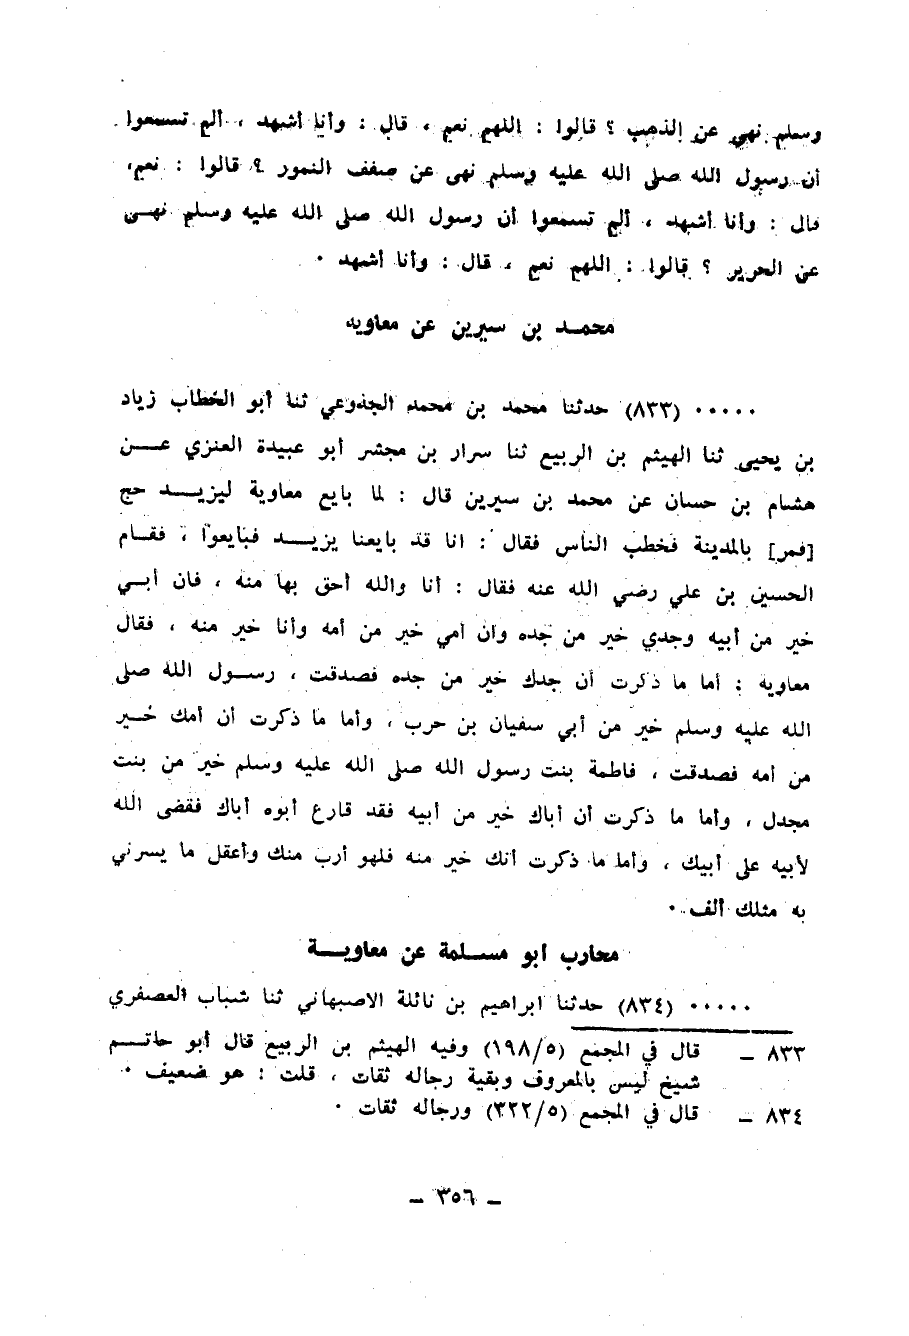 وسلم نهى عن الذهب ؟ قالوا : اللهم نعم ، قال : وأنا أشهد ، ألم تسمعوا
أن رسول الله صلى الله عليه وسلم نهى عن صفف النمور ؟ قالوا : نعم،
قال : وأنا أشهد ، ألم تسمعوا أن رسول الله صلى الله عليه وسلم نهى
عن الحرير ؟ قالوا : اللهم نعم ، قال : وأنا أشهد ٠
محمد بن سيرين عن معاويه
٠٠٠٠٠ (٨٣٣) حدثنا محمد بن محمد الجذوعي ثنا أبو الخطاب زياد
بن يحيى ثنا الهيثم بن الربيع ثنا سرار بن مجشر أبو عبيدة العنزي عن
هشام بن حسان عن محمد بن سيرين قال : لما بايع معاوية ليزيد حج
[فمر] بالمدينة فخطب الناس فقال : انا قد بايعنا يزيد فبايعوا ، فقام
الحسين بن علي رضي الله عنه فقال : أنا والله أحق بها منه ، فان أبي
خير من أبيه وجدي خير من جده وان أمي خير من أمه وأنا خير منه ، فقال
معاوية : أما ما ذكرت أن جدك خير من جده فصدقت ، رسول الله صلى
الله عليه وسلم خير من أبي سفيان بن حرب ، وأما ما ذكرت أن أمك خير
من أمه فصدقت ، فاطمة بنت رسول الله صلى الله عليه وسلم خير من بنت
مجدل ، وأما ما ذكرت أن أباك خير من أبيه فقد قارع أبوه أباك فقضى الله
لأبيه على أبيك ، وأما ما ذكرت أنك خير منه فلهو أرب منك وأعقل ما يسرني
به مثلك ألف ٠
محارب أبو مسلمة عن معاوية
٠٠٠٠٠ (٨٣٤) حدثنا ابراهيم بن نائلة الاصبهاني ثنا شباب العصفري
٨٣٣ ـ قال في المجمع (١٩٨/٥) وفيه الهيثم بن الربيع قال أبو حاتم
شيخ ليس بالمعروف وبقية رجاله ثقات ، قلت : هو ضعيف ٠
٨٣٤ ـ قال في المجمع (٣٢٢/٥) ورجاله ثقات ٠
ـ ٣٥٦ ـ